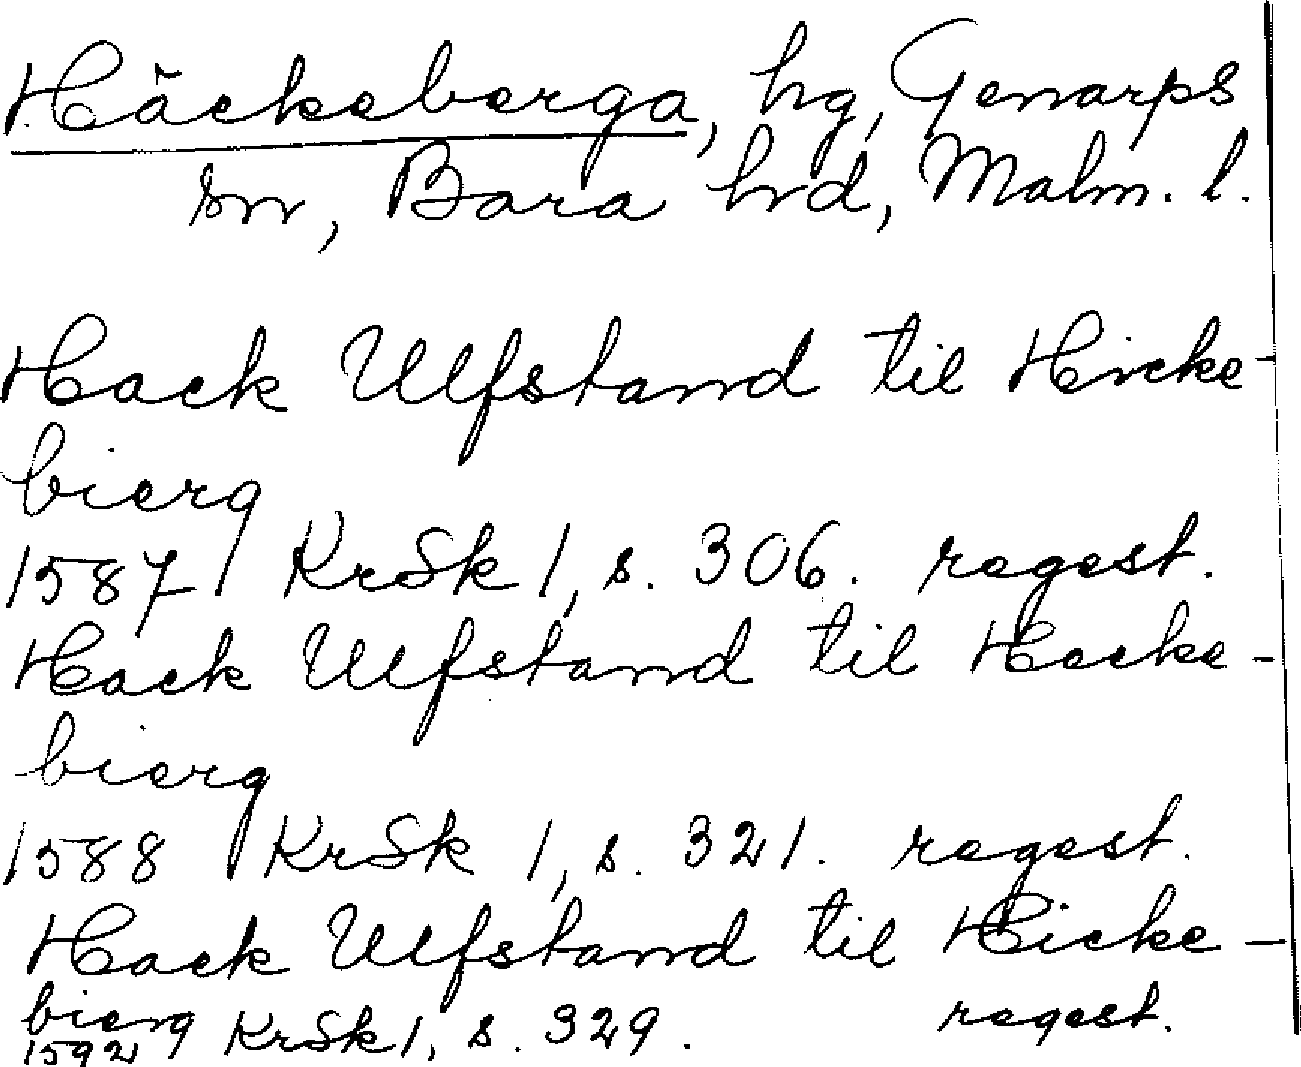 Häckeberga, hg, Genarps
sn, Bara hrd, Malm. l.
Hack Ulfstand til Hicke-
bierg
1587 KrSk 1, s. 306. regest.
Hack Ulfstand til Hecke-
bierg
1588 KrSk 1, s. 321. regest.
Hack Ulfstand til Hicke-
bierg KrSk 1, s. 329. regest.
1592